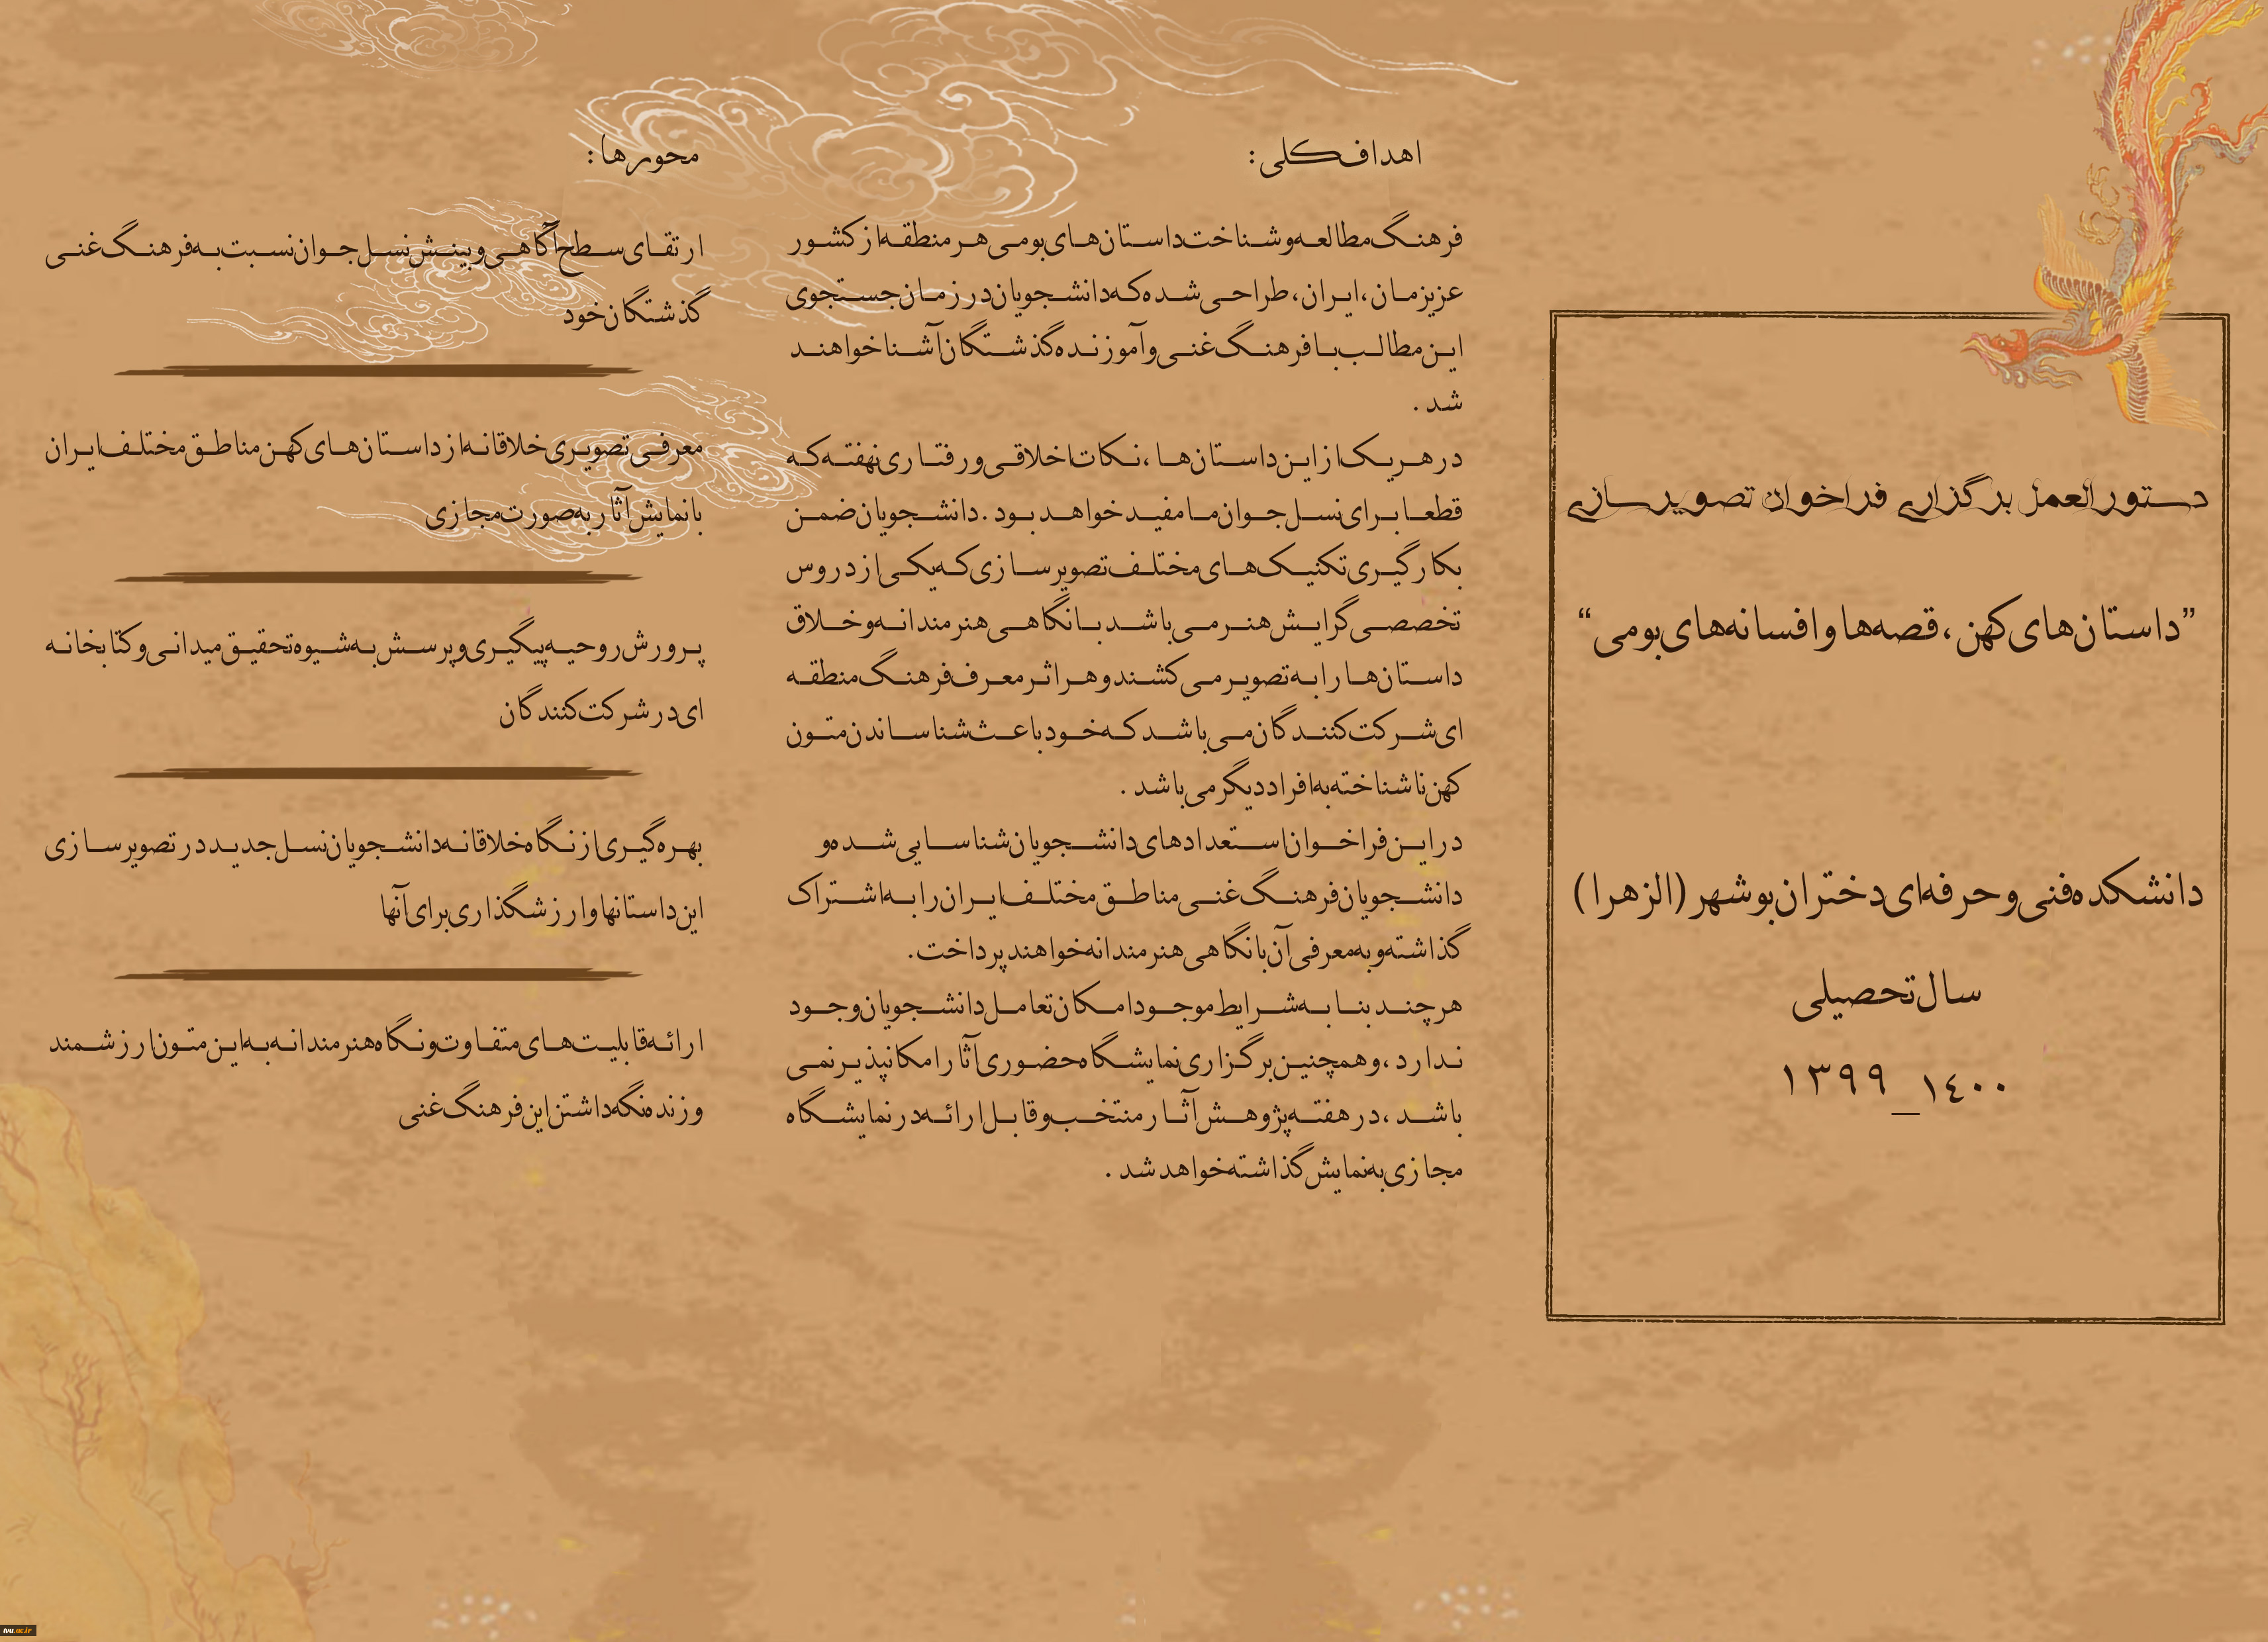 دستورالعمل برگزاری فراخوان تصویرسازی
”داستان‌های کهن، قصه‌ها و افسانه‌های بومی“
دانشکده فنی و حرفه‌ای دختران بوشهر (الزهرا)
سال تحصیلی
۱۳۹۹_۱۴۰۰
اهداف کلی :
فرهنگ مطالعه و شناخت داستان‌های بومی هر منطقه از کشور
عزیزمان، ایران، طراحی شده که دانشجویان در زمان جستجوی
این مطالب با فرهنگ غنی و آموزنده گذشتگان آشنا خواهند
شد .
در هر یک از این داستان‌ها، نکات اخلاقی و رفتاری نهفته که
قطعا برای نسل جوان ما مفید خواهد بود. دانشجویان ضمن
بکارگیری تکنیک‌های مختلف تصویرسازی که یکی از دروس
تخصصی گرایش هنر می باشد با نگاهی هنرمندانه و خلاق
داستان‌ها را به تصویر می کشند و هر اثر معرف فرهنگ منطقه
ای شرکت کنندگان می باشد که خود باعث شناساندن متون
کهن ناشناخته به افراد دیگر می باشد .
در این فراخوان استعدادهای دانشجویان شناسایی شده و
دانشجویان فرهنگ غنی مناطق مختلف ایران را به اشتراک
گذاشته و به معرفی آن با نگاهی هنرمندانه خواهند پرداخت.
هر چند بنا به شرایط موجود امکان تعامل دانشجویان وجود
ندارد، و همچنین برگزاری نمایشگاه حضوری آثار امکانپذیر نمی
باشد، در هفته پژوهش آثار منتخب و قابل ارائه در نمایشگاه
مجازی به نمایش گذاشته خواهد شد .
محورها :
ارتقای سطح آگاهی و بینش نسل جوان نسبت به فرهنگ غنی
گذشتگان خود
معرفی تصویری خلاقانه از داستان‌های کهن مناطق مختلف ایران
با نمایش آثار به صورت مجازی
پرورش روحیه پیگیری و پرسش به شیوه تحقیق میدانی و کتابخانه
ای در شرکت کنندگان
بهره گیری از نگاه خلاقانه دانشجویان نسل جدید در تصویرسازی
این داستانها و ارزشگذاری برای آنها
ارائه قابلیت‌های متفاوت و نگاه هنرمندانه به این متون ارزشمند
و زنده نگه داشتن این فرهنگ غنی
tvu.ac.ir